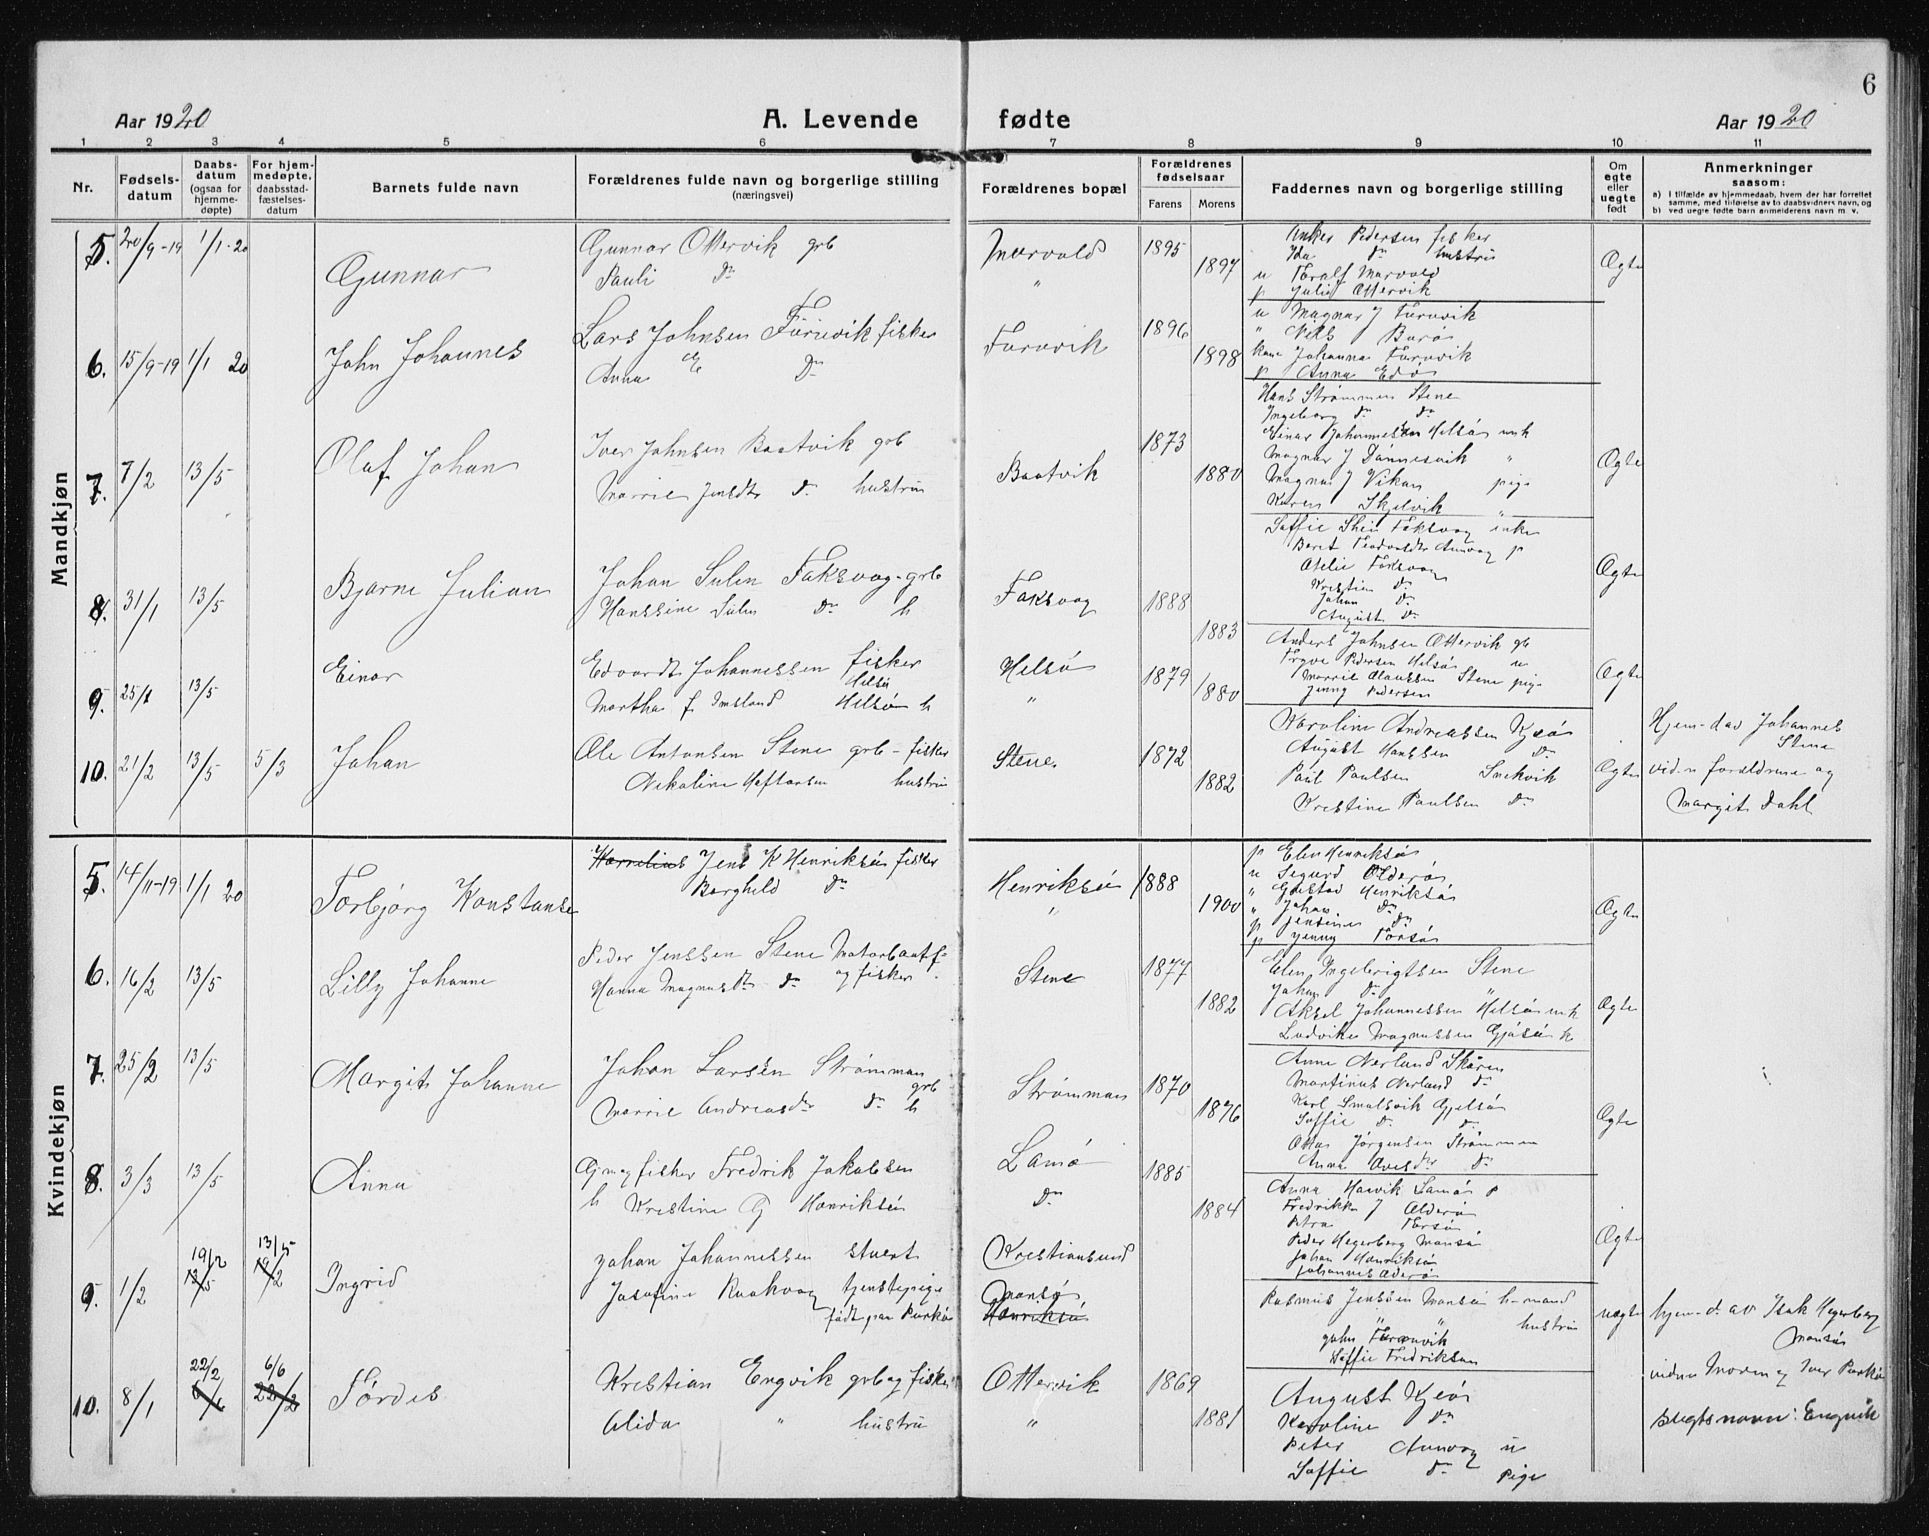 6
Aar 1920
A. Levende fødte
Aar 1920
1 2 3 4 5 6 7 8 9 10 11
Nr.
Fødsels-
datum
Daabs-
datum
(ogsaa for
hjemme-
døpte)
For hjem-
medøpte,
daabsstad-
fæstelses-
datum
Barnets fulde navn
Forældrenes fulde navn og borgerlige stilling
(næringsvei)
Forældrenes bopæl
Forældrenes
fødselsaar
Farens Morens
Faddernes navn og borgerlige stilling
Om
egte
eller
uegte
født
Anmerkninger
saasom:
a) I tilfælde av hjemmedaab, hvem der har forrettet
samme, med tilføielse av to daabsvidners navn, og
b) ved uegte fødte barn anmelderens navn m. v.
Mandkjøn
5. 20/9-19 1/1-20
Gunnar
Gunnar Ottervik grb
Pauli Do
Mærvold
"
1895
1897
Anker Pedersen fisker
Ida do hustru
u Toralf Mærvold
p Julie Ottervik
Ægte
6. 15/9-19 1/1 20
John Johannes
Lars Johnsen Furuvik fisker
Anna E Do
Furuvik
1896
1898
u Magnus J Furuvik
" Nils Burø
kone Johanna Furuvik
p Anna Edø
7. 7/2 13/5
Olaf Johan
Iver Johnsen Baatvik grb
Marrie Jensdtr do hustru
Baatvik
1873
1880
Hans Strømmen Stene
Ingeborg do do
Einar Johannessen Helsø unk
Magnar J Dønnesvik "
Magna J Vikan pige
Karen Skjelvik "
Ægte
8. 31/1 13/5
Bjarne Julian
Johan Sulen Faksvog grb
Hanssine Sulen Do h
Faksvog
1888
1883
Soffie Faksvog enke
Ætelie Faksvog
Kristian do
Johan Do
August Do
Ægte
9. 25/1 13/5
Einar
Edvardt Johannessen fisker
Helsø
Martha f. Imsland Helsø h
Helsø
"
1879
1880
Anders Johnsen Ottervik gb
Trygve Pedersen Helsø u
Marrie Olaussen Stene pige
Jenny Pedersen
Ægte
10. 21/2 13/5 5/3
Johan
Ole Antonsen Stene grb - fisker
Nikoline Meftansen hustru
Stene
1872
1882
Karoline Andreassen Kjeø
August Hanssen Do
Paul Paulsen Snekvik
Kristine Paulsen Do
Ægte
Hjem-d av Johannes
Stene
vidn foreldrene og
Margit Dahl
Kvindekjøn
5. 14/11-19 1/1 20
Torbjørg Konstanse
Kornelius Jens K Henriksø fisker
Borghild Do
Henriksø
"
1888
1900
p Elen Henriksø
u Sigurd Olderø
" Gustav Henriksø
" Johan Do
p Jensine do
p Jenny Torsø
Ægte
6. 16/2 13/5
Lilly Johanne
Peder Jenssen Stene Motorbaatf
Hanna Magnusdtr do og fisker
Stene
1877
1882
Elen Ingebrigtsen Stene
Johan Do
Aksel Johannessen Helsø unk
Ludvikke Magnussen Gjøsø k
Ægte
7. 25/2 13/5
Margit Johanne
Johan Larsen Strømman
grb
Marrie Andreasdtr do h
Strømman
1870
1876
Anne Nerland Skåren
Martinus Nerland do
Karl Smalsvik Gjelsø
Soffie do do
Jørgensen Strømmen
Anna do
Ægte
8. 3/3 13/5
Anna
Gjm og fisker Fredrik Jakobsen
h Kristine G Henriksø
Lamø
Do
1885
1884
Anna Hasvik Lamø p
Fredrikke J Olderø
Petra Torsø
Peder Hegerberg Mansø
Johan Henriksø
Johannes Olderø
Ægte
9. 1/2 19/2 13/5 13/5 19/2
Ingrid
Johan Johannessen stuert
Josefine Raakvog tjenstepige
født paa Purkø
Kristiansund
Mansø
Henriksø
Rasmus Jenssen Mansø h-mand
" " hustru
John Furuvik
Soffie Fredriksen
uægte
hjem-d. av Isak Hegerberg
Mansø
vidner Moren og Iver Purkø
10. 8/1 22/2 6/6 6/6 22/2
Tordis
Kristian Engvik grb og fisker
Alida " hustru
Ottervik
"
1869
1881
August Kjeø
Karoline Do
Peter Aunvog u
Soffie do pige
slegtsnavn: Engvik